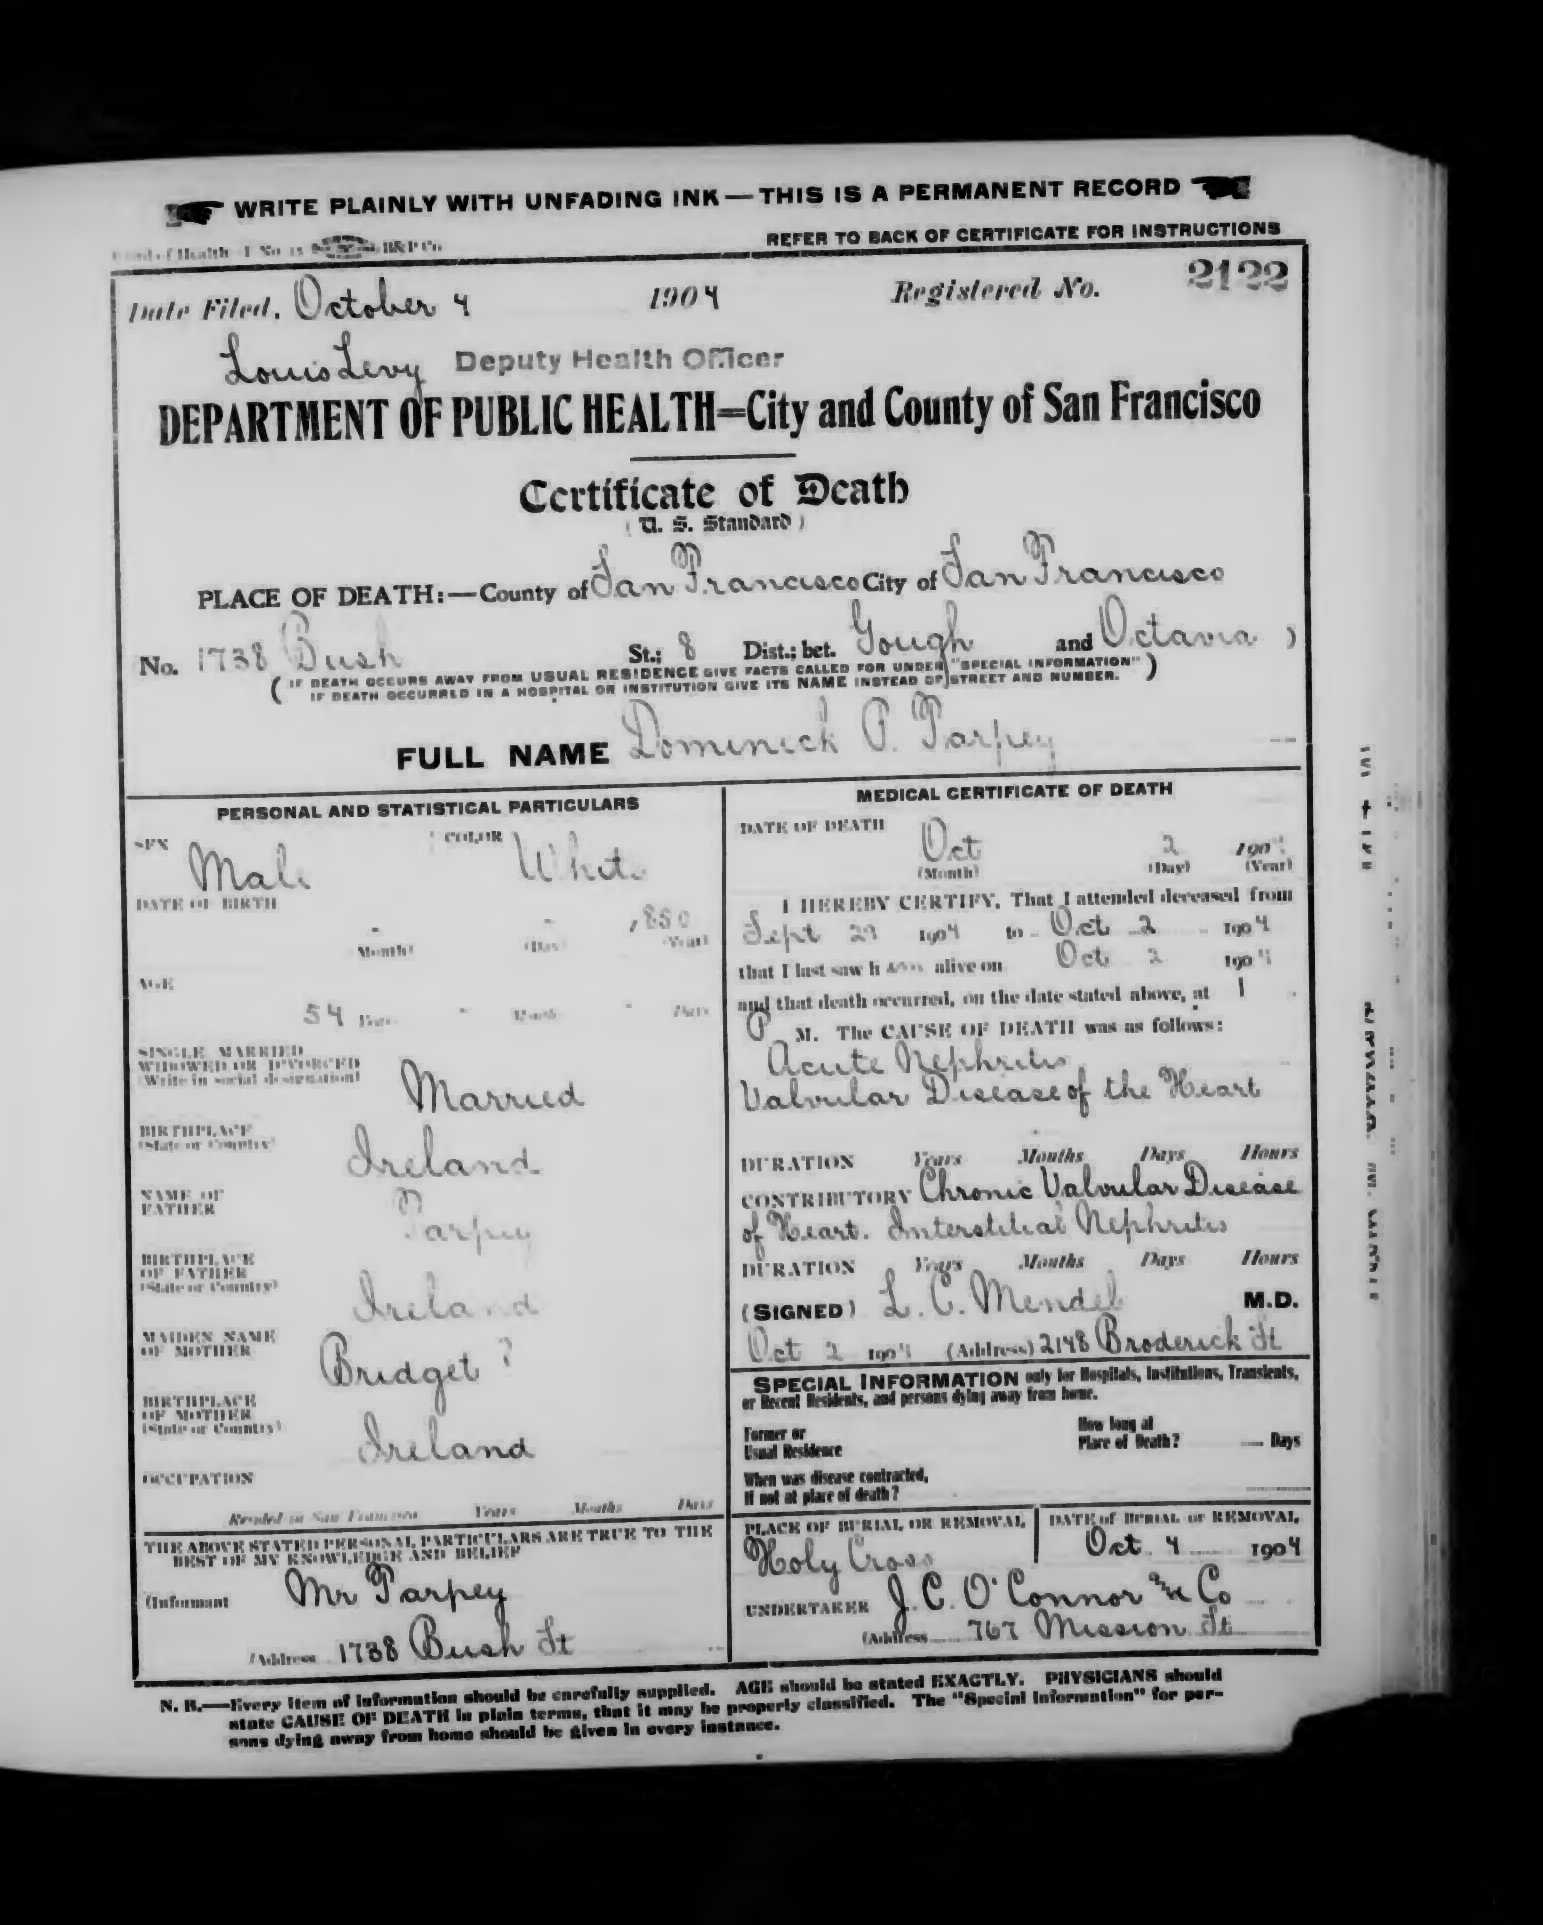 WRITE PLAINLY WITH UNFADING INK — THIS IS A PERMANENT RECORD
of Health B&P Co
REFER TO BACK OF CERTIFICATE FOR INSTRUCTIONS
Date Filed, October 4 1904 Registered No. 2122
Louis Levy Deputy Health Officer
DEPARTMENT OF PUBLIC HEALTH=City and County of San Francisco
Certificate of Death
(U. S. Standard)
PLACE OF DEATH:—County of San Francisco City of San Francisco
No. 1738 Bush St.; 8 Dist.; bet. Gough and Octavia )
( IF DEATH OCCURS AWAY FROM USUAL RESIDENCE GIVE FACTS CALLED FOR UNDER "SPECIAL INFORMATION" )
IF DEATH OCCURRED IN A HOSPITAL OR INSTITUTION GIVE ITS NAME INSTEAD OF STREET AND NUMBER.
FULL NAME Dominick P. Tarpey
PERSONAL AND STATISTICAL PARTICULARS
SEX Male COLOR White
DATE OF BIRTH
- - 1850
(Month) (Day) (Year)
AGE
54 Years - Months - Days
SINGLE, MARRIED
WIDOWED OR DIVORCED
(Write in social designation)
Married
BIRTHPLACE
(State or Country)
Ireland
NAME OF
FATHER
Tarpey
BIRTHPLACE
OF FATHER
(State or Country)
Ireland
MAIDEN NAME
OF MOTHER
Bridget ?
BIRTHPLACE
OF MOTHER
(State or Country)
Ireland
OCCUPATION
Resided in San Francisco Years Months Days
THE ABOVE STATED PERSONAL PARTICULARS ARE TRUE TO THE
BEST OF MY KNOWLEDGE AND BELIEF
(Informant Mr Tarpey
(Address 1738 Bush St
MEDICAL CERTIFICATE OF DEATH
DATE OF DEATH
Oct 2 1904
(Month) (Day) (Year)
I HEREBY CERTIFY, That I attended deceased from
Sept 29 1904 to Oct 2 1904
that I last saw h im alive on Oct 2 1904
and that death occurred, on the date stated above, at 1
P M. The CAUSE OF DEATH was as follows:
Acute Nephritis
Valvular Disease of the Heart
DURATION Years Months Days Hours
CONTRIBUTORY Chronic Valvular Disease
of Heart. Interstitial Nephritis
DURATION Years Months Days Hours
(SIGNED) L. C. Mendel M.D.
Oct 2 1904 (Address) 2148 Broderick St
SPECIAL INFORMATION only for Hospitals, Institutions, Transients,
or Recent Residents, and persons dying away from home.
Former or
Usual Residence
How long at
Place of Death? Days
When was disease contracted,
If not at place of death?
PLACE OF BURIAL OR REMOVAL
Holy Cross
DATE of BURIAL or REMOVAL
Oct 4 1904
UNDERTAKER J. C. O'Connor & Co
(Address 767 Mission St
N. B.—Every item of information should be carefully supplied. AGE should be stated EXACTLY. PHYSICIANS should
state CAUSE OF DEATH in plain terms, that it may be properly classified. The "Special Information" for per-
sons dying away from home should be given in every instance.